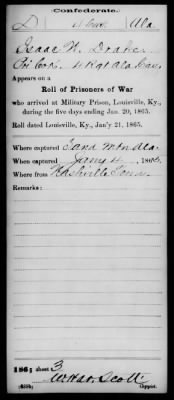 Confederate.
D Ala
Isaac N. Draker
Co. K. 4 Regt Ala Cav.
Appears on a
Roll of Prisoners of War
who arrived at Military Prison, Louisville, Ky.,
during the five days ending Jan. 20, 1865.
Roll dated Louisville, Ky., Jan'y 21, 1865.
Where captured Sand Mtn Ala.
When captured Jany 4, 1865.
Where from Nashville Tenn.
Remarks:
186; sheet 3
Scott
Copyist.